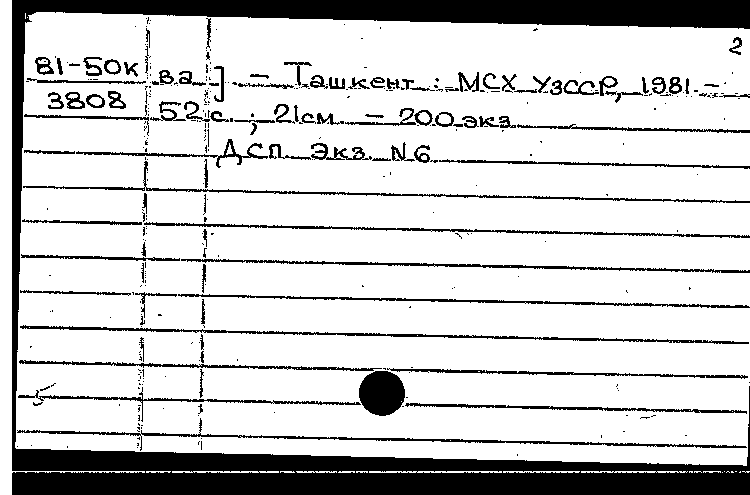 2
81-50к ва] - Ташкент : МСХ УзССР, 1981 -
3808 52 с. ; 21см - 200 экз
ДСП. Экз. N6
5